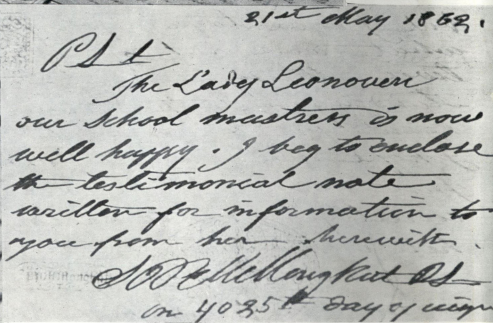 21st May 1862.
P S
The Lady Leonoven
our school mistress is now
well happy. I beg to enclose
the testimonial note
written for information to
you from her herewith.
S P P M Mongkut R S
on 4025th day of reign